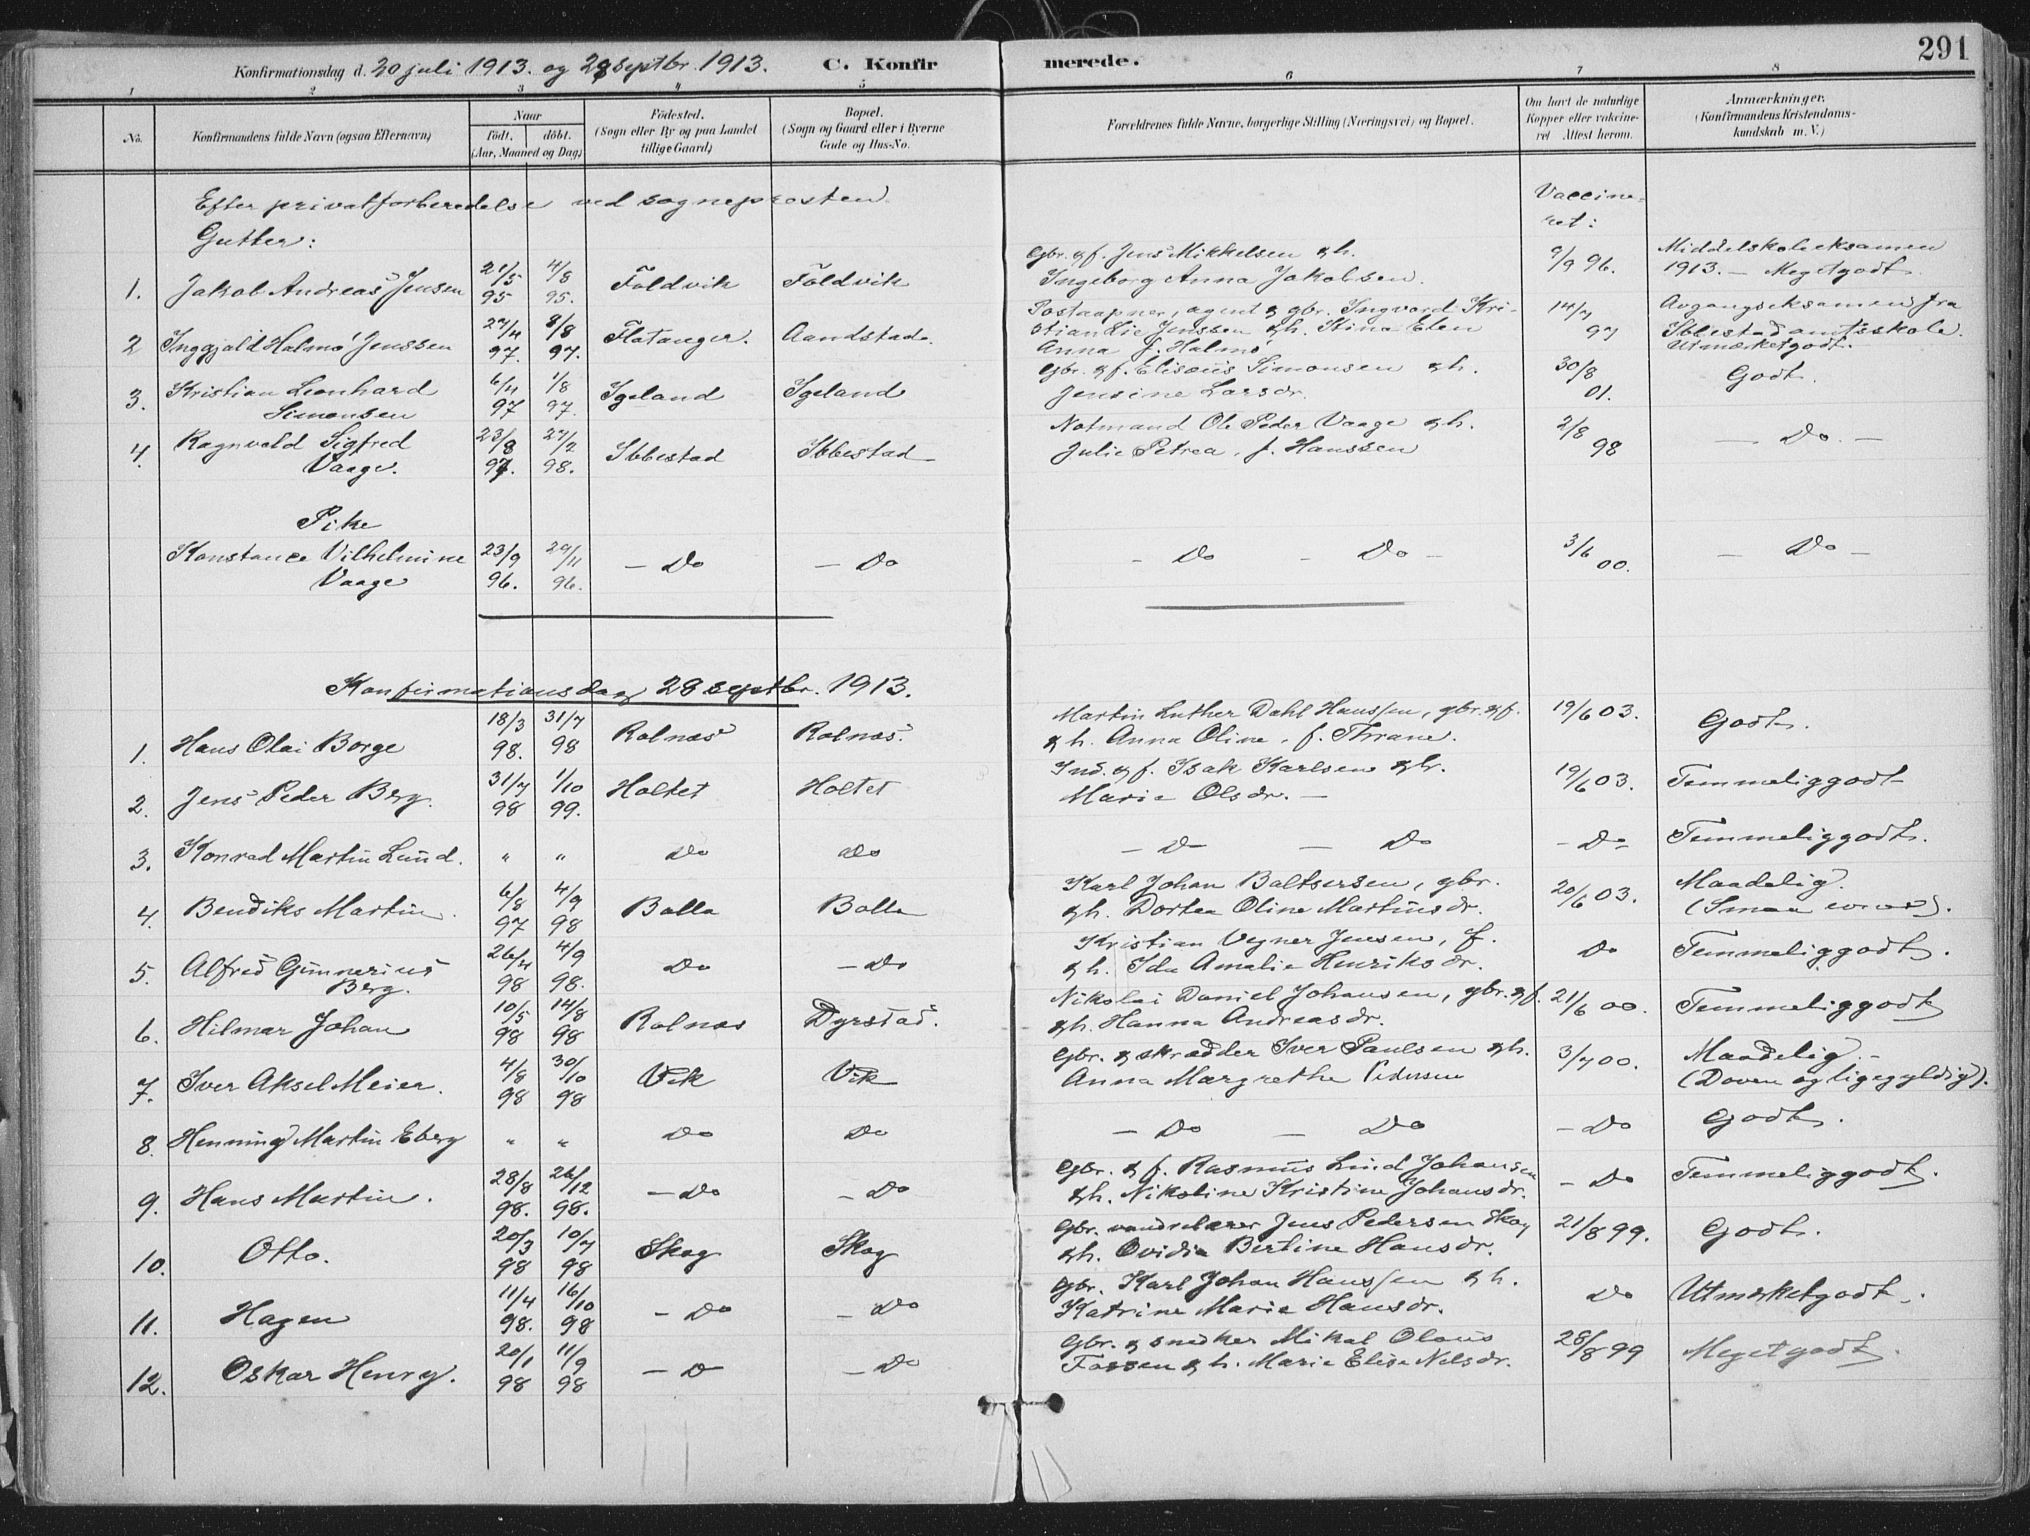 291
Konfirmationsdag d. 20 juli 1913. og 28 septbr. 1913. C. Konfirmerede.
1 2 3 4 5 6 7 8
No. Konfirmandens fulde Navn (ogsaa Efternavn) Naar født. døbt. (Aar, Maaned og Dag) Fødested. (Sogn eller By og paa Landet tillige Gaard) Bopæl. (Sogn og Gaard eller i Byerne Gade og Hus-No. Forældrenes fulde Navne, borgerlige Stilling (Næringsvei) og Bopæl. Om havt de naturlige Kopper eller vaccineret Attest herom. Anmærkninger. (Konfirmandens Kristendomskundskab m. V.)
Efter privatforberedelse ved sogneprosten Vaccineret:
Gutter:
1. Jakob Andreas Jensen 21/5 95 4/8 95. Foldvik Foldvik Gbr. & f. Jens Mikkelsen & h. Ingeborg Anna Jakobsen. 9/9 96. Middelskoleeksamen 1913. — Megetgodt.
2 Inggjald Halmø Jenssen 27/4 97. 8/8 97. Flatanger. Aandstad. Postaapner, agent & gbr. Ingvard Kristian Jenssen & h. Kina Elen Anna f. Halmø 14/7 97 Avgangseksamen fra Ibbestad amtsskole. Utmerketgodt.
3. Kristian Leonhard Simonsen 6/4 97 1/8 97. Igeland Igeland Gbr. & f. Elisæus Simonsen & h. Jensine Larsdr. 30/8 01. Godt.
4. Ragnvald Sigfred Vaage. 23/8 97. 27/2 98. Ibbestad Ibbestad Notmand Ole Peder Vaage & h. Julie Petrea, f. Hanssen 2/8 98 — Do. —
Pike
Konstance Vilhelmine Vaage 23/9 96. 29/11 96. — Do — Do — Do — Do — 3/6 00. — Do —
Konfirmationsdag 28 septbr. 1913.
1. Hans Olai Borge 18/3 98. 31/7 98 Rolnæs Rolnæs. Martin Luther Dahl Hanssen, gbr. & f. & h. Anna Oline, f. Thrane. 19/6 03. Godt.
2. Jens Peder Berg. 31/7 98 1/10 99. Holtet Holtet Ind. & f. Isak Karlsen & h. Marie Olsdr. — 19/6 03. Temmeliggodt
3. Konrad Martin Lund. " " Do Do — Do — Do — Do Temmeliggodt.
4. Bendiks Martin. 6/8 97 4/9 98 Bolla Bolla Karl Johan Baltsersen, gbr. & h. Dortea Oline Martinsdr. 20/6 03. Maadelig. (Smaa evner).
5. Alfred Gunnerius Berg. 26/4 98 4/9 98. Do — Do Kristian Vegner Jensen, f. & h. Ida Amalie Henriksdr. Do Temmeliggodt.
6. Hilmar Johan 10/5 98 14/8 98 Rolnæs Dyrstad. Nikolai Daniel Johansen, gbr. & f. & h. Hanna Andreasdr. 21/6 00. Temmeliggodt
7. Iver Aksel Meier. 4/8 98 30/10 98 Vik Vik Gbr. & skrædder Iver Paulsen & h. Anna Margrethe Pedersen 3/7 00. Maadelig. — (Doven og ligegyldig).
8. Henning Martin Eberg " " Do Do — Do — Do — Do Godt.
9. Hans Martin. 28/8 98. 26/12 98. — Do — Do Gbr. & f. Rasmus Lind Johansen & h. Nikoline Kristine Johansdr. — Do Temmeliggodt.
10. Otto. 20/3 98 10/7 98 Skog Skog Gbr. vandrelærer Jens Pedersen Skog & h. Ovidia Bertine Hansdr. 21/8 99. Godt.
11. Hagen 11/4 98. 16/10 98 — Do — Do Gbr. Karl Johan Hanssen & h. Katrine Marie Hansdr. Do Utmerketgodt.
12. Oskar Henry. 20/1 98 11/9 98 — Do — Do Gbr. & snedker Mikal Olaus Fossen & h. Marie Elise Nelsdr. 28/8 99 Megetgodt.